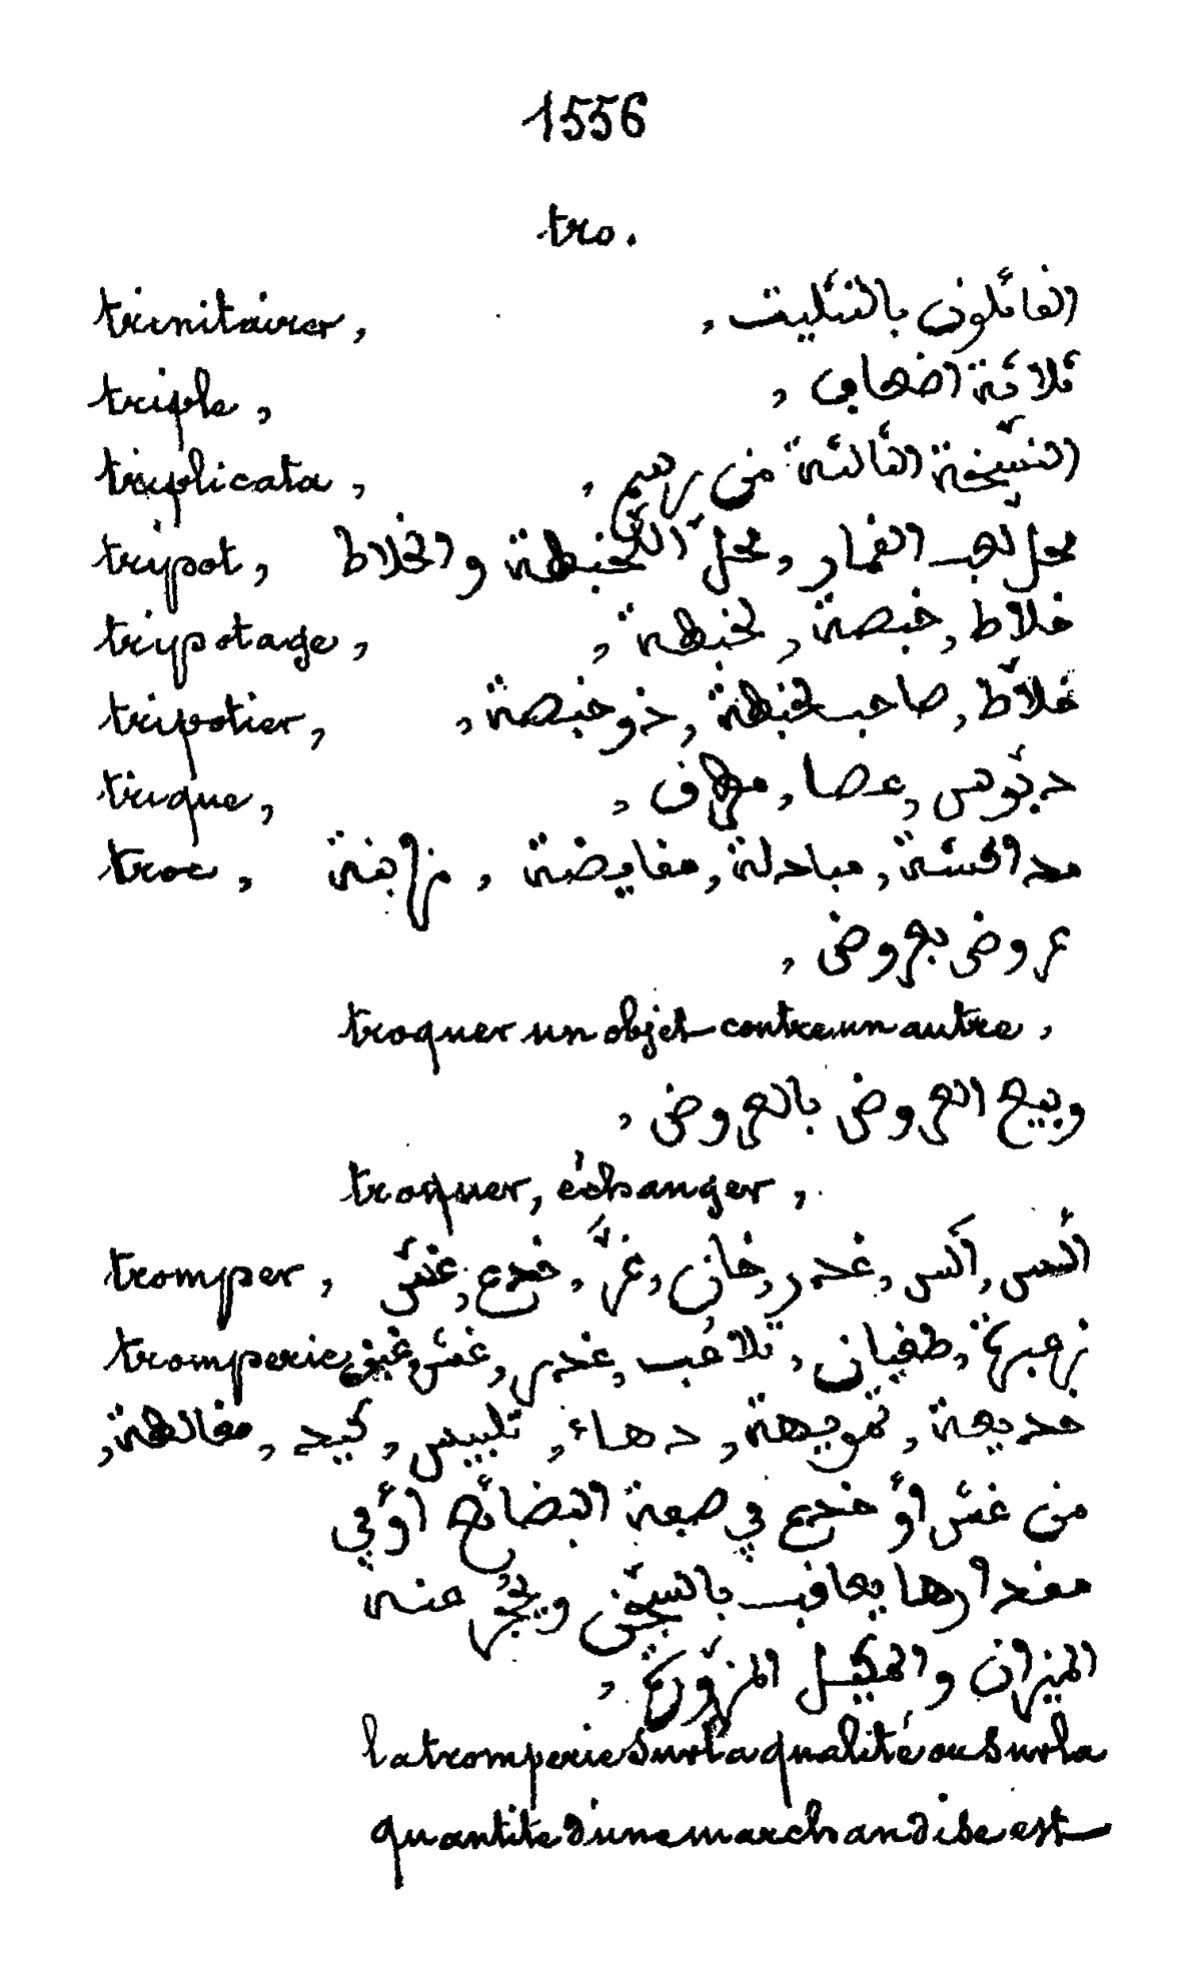 1556
tro.
trinitaires, القائلون بالتثليث,
triple, ثلاثة اضعاف,
triplicata, النسخة الثالثة من رسم,
tripot, محل لعب القمار, محل اللخبطة والخلاط
tripotage, خلاط, خبصة, لخبطة,
tripotier, خلاّط, صاحب لخبطة, ذو خبصة,
trique, دبّوس, عصا,
troc, مداكشة, مبادلة, مقايضة, مزابنة,
عروض بعروض,
troquer un objet contre un autre,
وبيع العروض بالعروض,
troquer, échanger,
tromper, ألس, غدر, خان, غرّ, خدع, غشّ
tromperie, زعبرة, طغيان, تلاعب, غدر, غش, غبن
خديعة, تمويهة, دهاء, تلبيس, كيد, مغالطة,
من غش أو خدع في صبعة البضائع أو في
مقدارها يعاقب بالسجن ويحجر عنه
الميزان والمكيل المزوّرة,
la tromperie sur la qualité ou sur la
quantité d'une marchandise est